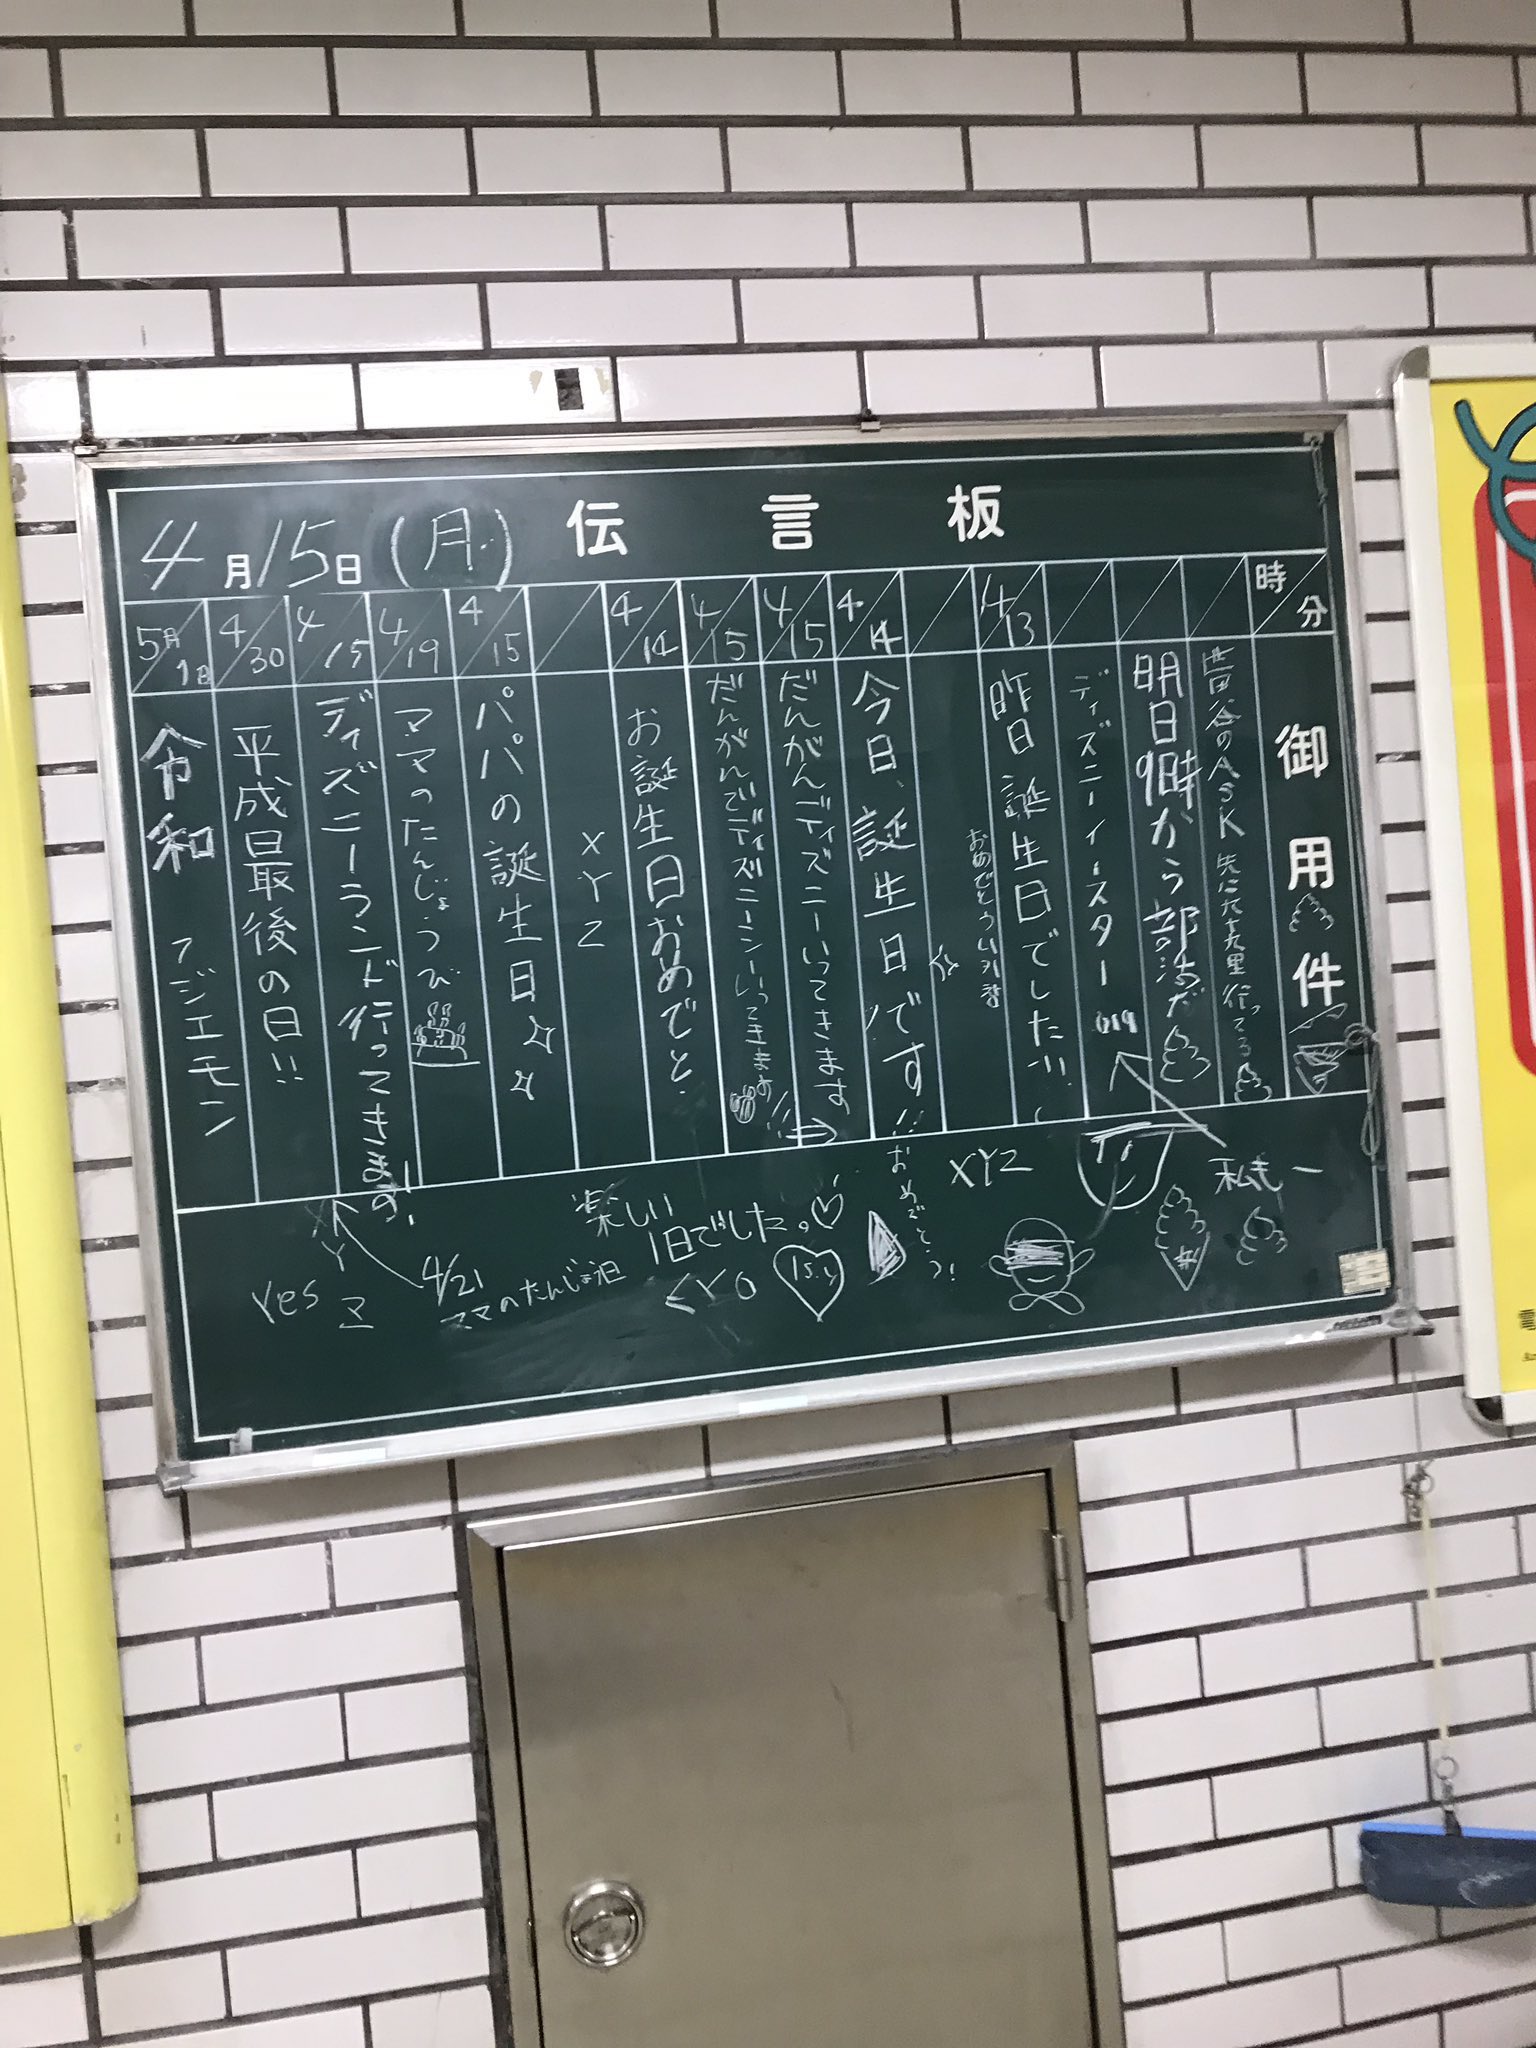 伝言板
4月15日(月)
時分
御用件
世田谷のASK 先に九十九里行ってる
明日9時から部活だ
ディズニーイースター
4/13
昨日誕生日でした!!
4/14
今日、誕生日です!!!おめでとう!
4/15
だんがんディズニーいってきます
4/15
だんがんでディズニーシーいってきます
4/14
お誕生日おめでと
XYZ
4/15
パパの誕生日
4/19
ママのたんじょうび
4/15
ディズニーランド行ってきます!
4/30
平成最後の日!!
5月1日
令和 アジエモン
私もー
XYZ
楽しい
1日でした。
4/21
ママのたんじょう日
XYZ
Yes